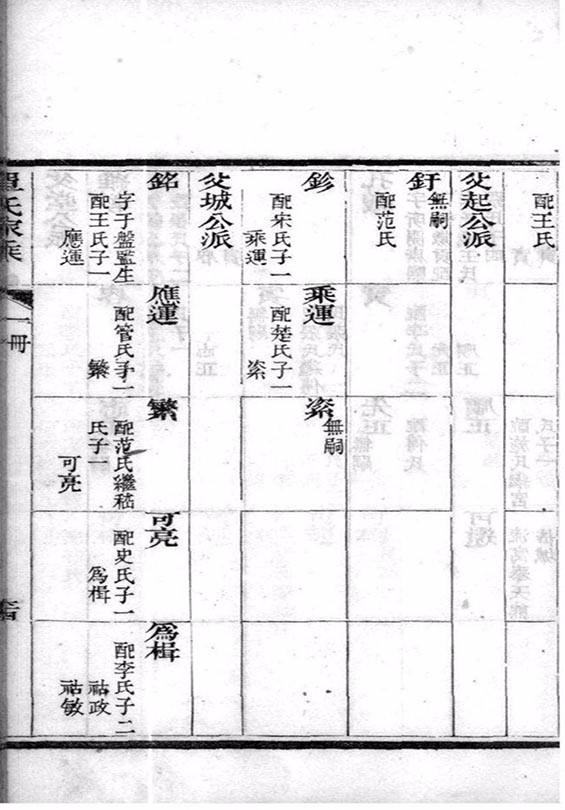 配王氏
文起公派
釪
無嗣
配范氏
鉁
配宋氏子一
乘運
乘運
配楚氏子一
粢
粢
無嗣
文城公派
銘
字子盤監生
配王氏子一
應運
應運
配管氏子一
繁
繁
配范氏繼嵇
氏子一
可亮
可亮
配史氏子一
爲楫
爲楫
配李氏子二
祜政
祜敏
氏家乘
一冊